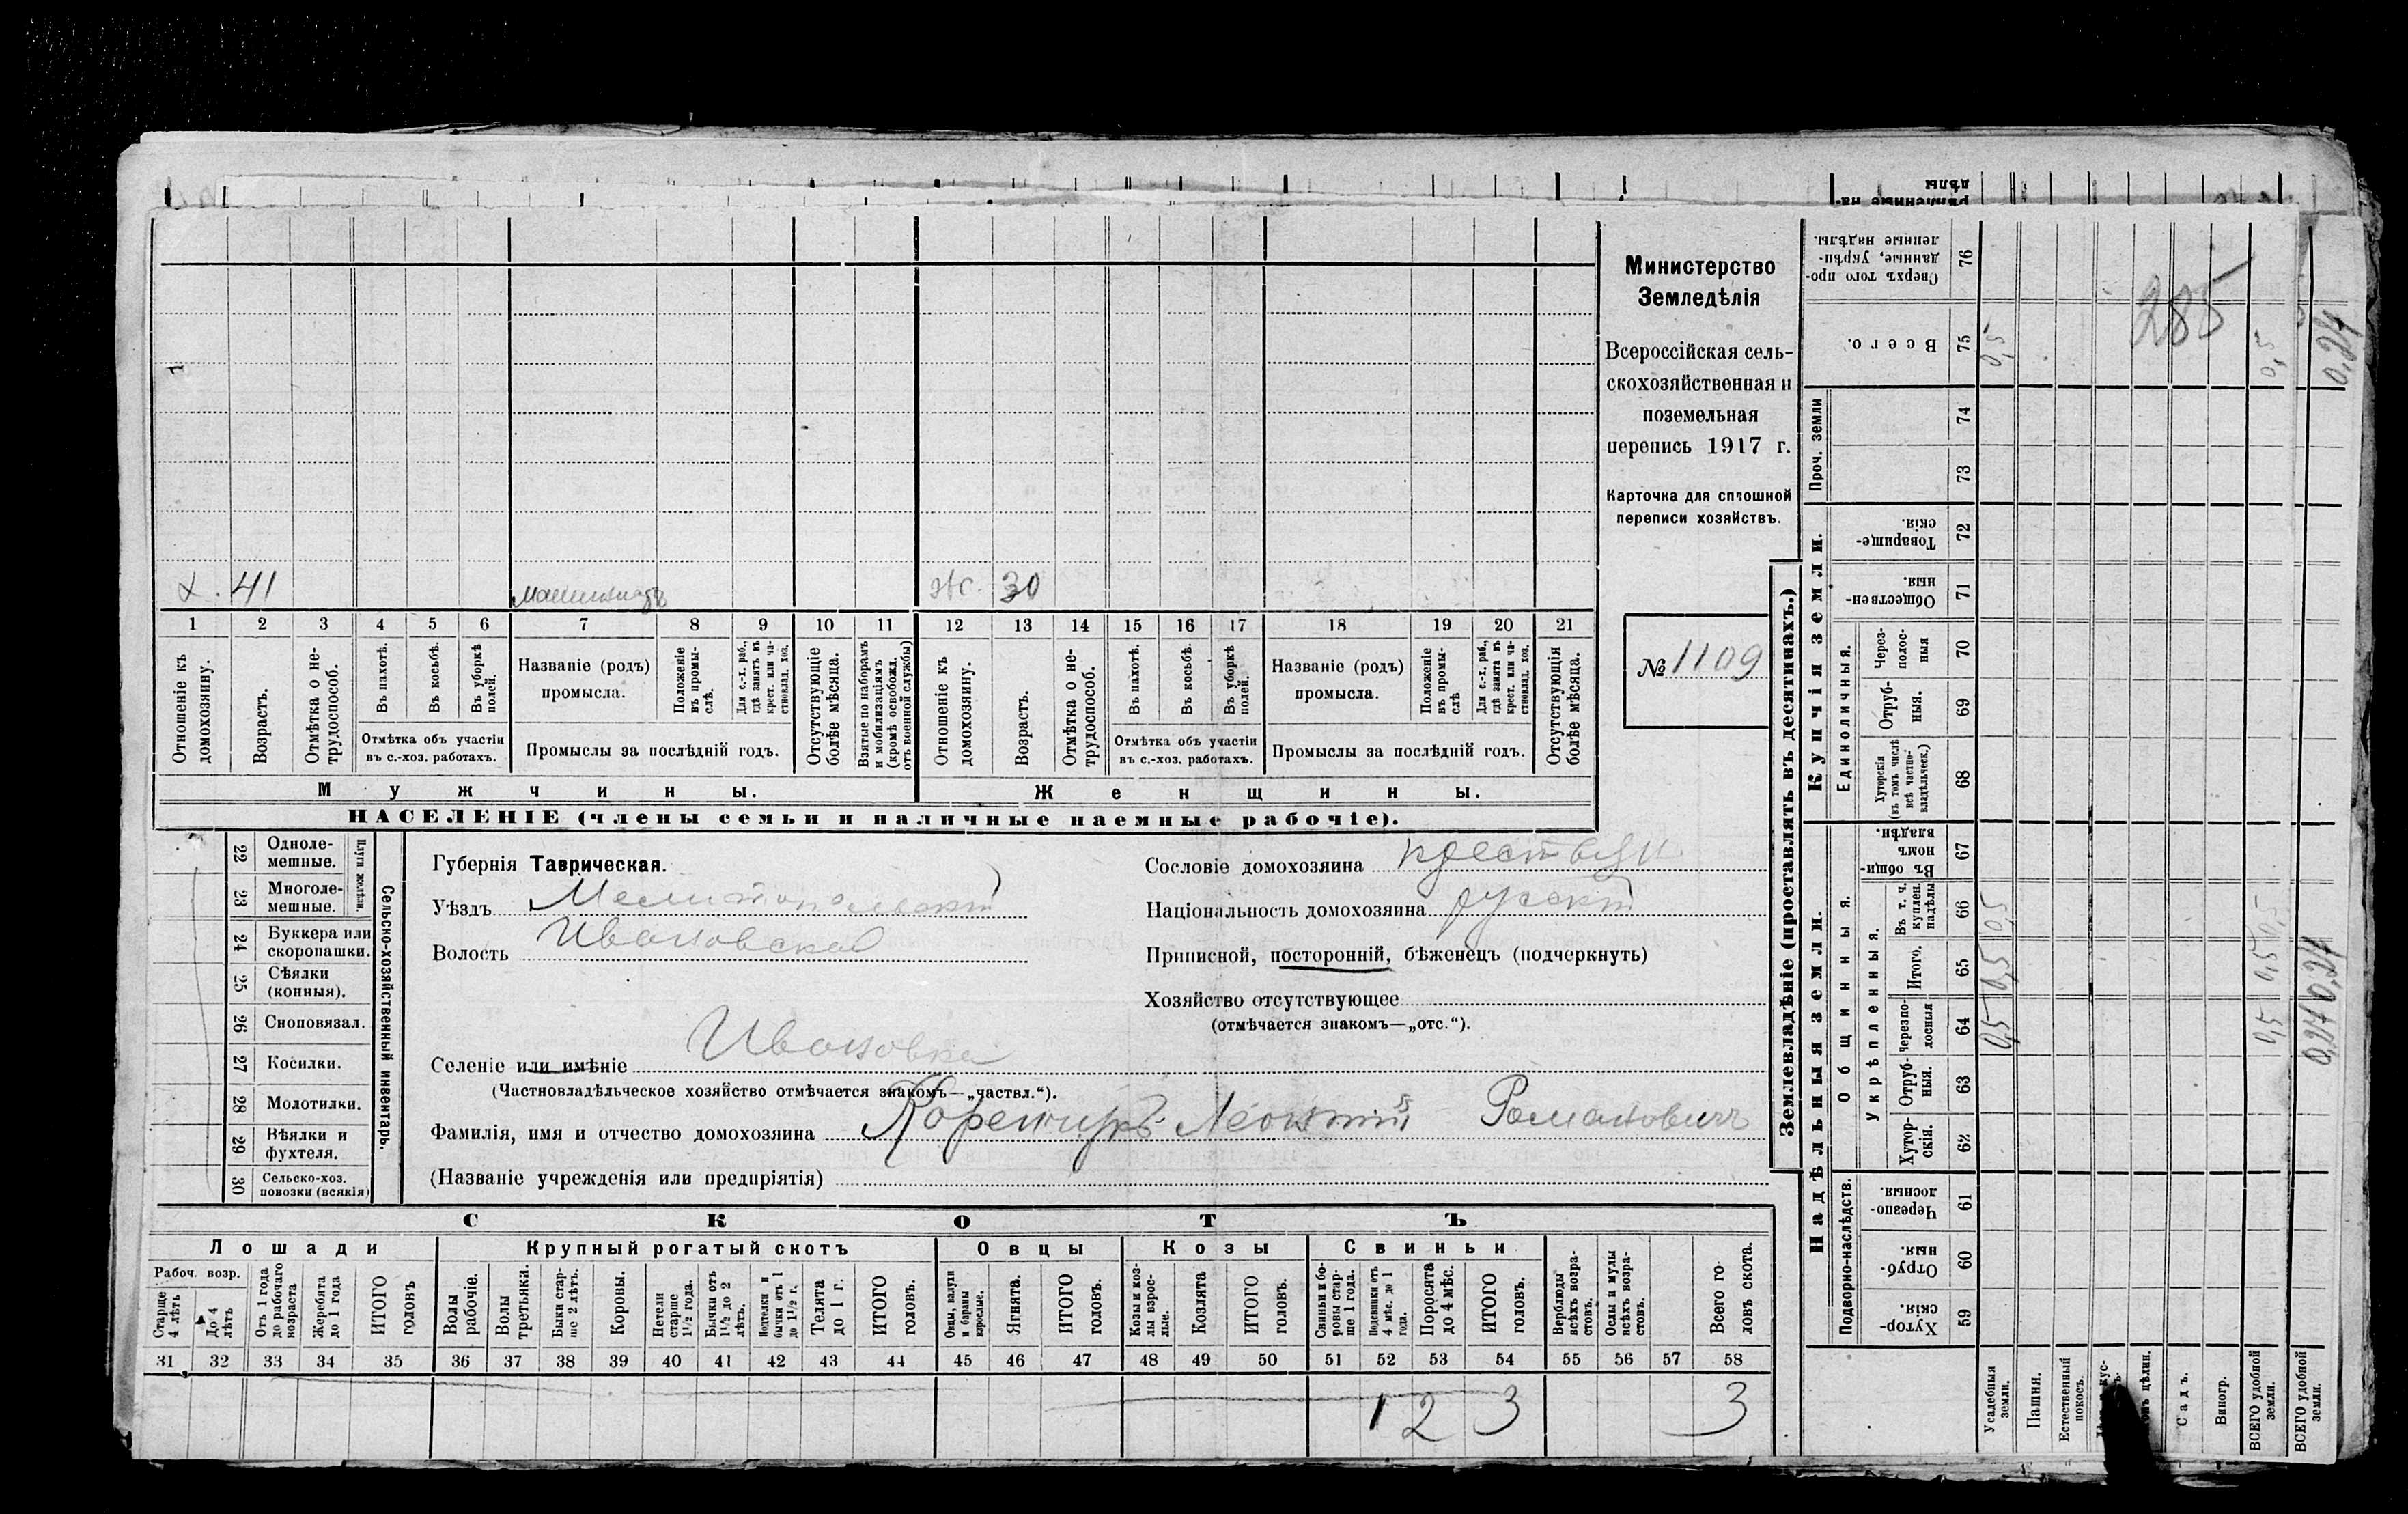 х. 41 машинистъ ж. 30
1 2 3 4 5 6 7 8 9 10 11 12 13 14 15 16 17 18 19 20 21
Отношеніе къ домохозяину.
Возрастъ.
Отмѣтка о не-
трудоспособ.
Въ пахотѣ.
Въ косьбѣ.
Въ уборкѣ
полей.
Отмѣтка объ участіи
въ с.-хоз. работахъ.
Названіе (родъ)
промысла.
Положеніе
въ промы-
слѣ.
Для с.-х. раб.,
гдѣ занятъ въ
крест. или ча-
стновлад. хоз.
Промыслы за послѣдній годъ.
Отсутствующіе
болѣе мѣсяца.
Взятые по наборамъ
и мобилизаціямъ
(кромѣ освобожд.
отъ военной службы)
Отношеніе къ
домохозяину.
Возрастъ.
Отмѣтка о не-
трудоспособ.
Въ пахотѣ.
Въ косьбѣ.
Въ уборкѣ
полей.
Отмѣтка объ участіи
въ с.-хоз. работахъ.
Названіе (родъ)
промысла.
Положеніе
въ промы-
слѣ
Для с.-х. раб.,
гдѣ занята въ
крест. или ча-
стновлад. хоз.
Промыслы за послѣдній годъ.
Отсутствующія
болѣе мѣсяца.
Мужчины. Женщины.
НАСЕЛЕНІЕ (члены семьи и наличные наемные рабочіе).
Министерство
Земледѣлія
Всероссійская сель-
скохозяйственная и
поземельная
перепись 1917 г.
Карточка для сплошной
переписи хозяйствъ.
№ 1109
22 Одноле-
мешные.
23 Многоле-
мешные.
Плуги желѣзн.
24 Буккера или
скоропашки.
25 Сѣялки
(конныя).
26 Сноповязал.
27 Косилки.
28 Молотилки.
29 Вѣялки и
фухтеля.
30 Сельско-хоз.
повозки (всякія)
Сельско-хозяйственный инвентарь.
Губернія Таврическая.
Уѣздъ Мелитопольскій
Волость Ивановская
Селеніе или имѣніе Ивановка
(Частновладѣльческое хозяйство отмѣчается знакомъ—„частвл.“).
Фамилія, имя и отчество домохозяина Леонтій Романовичъ
(Названіе учрежденія или предпріятія)
Сословіе домохозяина
Національность домохозяина русскій
Приписной, посторонній, бѣженецъ (подчеркнуть)
Хозяйство отсутствующее
(отмѣчается знакомъ—„отс.“).
СКОТЪ
Лошади Крупный рогатый скотъ Овцы Козы Свиньи
Рабоч. возр.
Старше
4 лѣтъ
До 4
лѣтъ
Отъ 1 года
до рабочаго
возраста
Жеребята
до 1 года
ИТОГО
головъ
Волы
рабочіе.
Волы
третьяки.
Быки стар-
ше 2 лѣтъ.
Коровы.
Нетели
старше
1½ года.
Бычки отъ
1½ до 2
лѣтъ.
Подтелки и
бычки отъ 1
до 1½ г.
Телята
до 1 г.
ИТОГО
головъ.
Овцы, валухи
и бараны
взрослые.
Ягнята.
ИТОГО
головъ.
Козы и коз-
лы взрос-
лые.
Козлята
ИТОГО
головъ.
Свиньи и бо-
ровы стар-
ше 1 года.
Подсвинки отъ
4 мѣс. до 1
года.
Поросята
до 4 мѣс.
ИТОГО
головъ.
Верблюды
всѣхъ возра-
стовъ.
Ослы и мулы
всѣхъ возра-
стовъ.
Всего го-
ловъ скота.
31 32 33 34 35 36 37 38 39 40 41 42 43 44 45 46 47 48 49 50 51 52 53 54 55 56 57 58
1 2 3 3
Землевладѣніе (проставлять въ десятинахъ.)
Купчія земли.
Надѣльныя земли.
Сверхъ того про-
данные, укрѣп-
ленные надѣлы.
76
Всего.
75 0,5 0,5 0,24
285
Проч. земли
74
73
Товарище-
скія.
72
Обществен-
ныя.
71
Единоличныя.
Через-
полос-
ныя
70
Отруб-
ныя.
69
Хуторскія
(въ томъ числѣ
всѣ частно-
владѣльческ.)
68
Общинныя.
Въ общин-
номъ
владѣн.
67
Укрѣпленныя.
Въ т. ч.
куплен.
надѣлы
66 0,5 0,5
Итого.
65 0,5 0,5 0,24
Черезпо-
лосныя
64 0,5 0,5 0,24
Отруб-
ныя.
63
Хутор-
скія.
62
Подворно-наслѣдств.
Черезпо-
лосныя.
61
Отруб-
ныя.
60
Хутор-
скія.
59
Усадебныя
земли.
Пашня.
Естественный
покосъ.
Садъ.
Виногр.
ВСЕГО удобной
земли.
ВСЕГО удобной
земли.